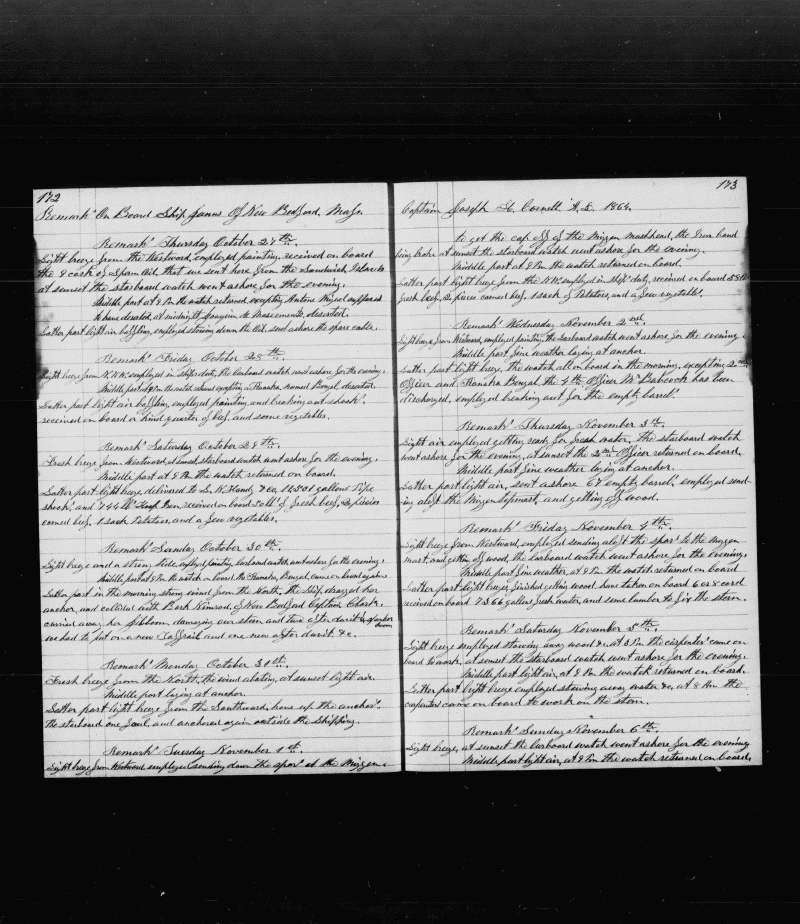 172
Remark's On Board Ship Janus Of New Bedford, Mass
Remark's Thursday October 27th.
Light breeze from the Westward, employed painting, received on board
the 8 cask of Spam Oil, that we sent here from the Sandwich Islands
at sunset the starboard watch went ashore for the evening.
Middle part at 9 Pm the watch returned excepting Antone Miguel supposed
to have deserted, at midnight Joaquim de Nascimento, deserted.
Latter part light air baffling, employed stowing down the Oil, sent ashore the spare cable.
Remark's Friday October 28th.
Light breeze from N.N.W. employed in Ship's duty, the larboard watch went ashore for the evening.
Middle part 9 Pm the watch returned excepting a Kanaka, named Bengal, deserted
Latter part light air baffling, employed painting and breaking out shook's
received on board a hind quarter of beef, and some vegetables.
Remark's Saturday October 29th.
Fresh breeze from Westward, at sunset starboard watch went ashore for the evening.
Middle part at 9 Pm the watch returned on board.
Latter part light breeze delivered to &co, gallons Pipe
shook's and 744 lb's Hoop Iron, received on board lb's of fresh beef, 2 pieces
corned beef, 1 sack Potatoes, and a few vegetables.
Remark's Sunday October 30th.
Light breeze and a strong tide, employed painting, larboard watch went ashore for the evening,
Middle part at 9 Pm the watch on board the Kanaka, Bengal, came on board again
Latter part in the morning strong wind from the North, the Ship dragged her
anchor, and collided with Bark Nimrod, of New Bedford Captain Clark,
carried away her jibboom, damaging our stern and two after davit's & larboard
we had to put on a new Taffrail and one new after davit's &c.
Remark's Monday October 31st.
Fresh breeze from the North, the wind abating, at sunset light air.
Middle part laying at anchor.
Latter part light breeze from the Southward, hove up the anchor's
the starboard one foul, and anchored again outside the Shipping.
Remark's Tuesday November 1st.
Light breeze from Westward employed sending down the spar's at the Mizzen.
173
Captain Joseph H. Cornell A.D. 1864.
to get the cap off of the Mizzen masthead, the Iron band
being broke at sunset the starboard watch went ashore for the evening.
Middle part at 9 Pm the watch returned on board.
Latter part light breeze from the N.W. employed in Ship's duty, received on board
fresh beef, 2 pieces corned beef, 1 sack of Potatoes, and a few vegetable's.
Remark's Wednesday November 2nd.
Light breeze from Westward, employed painting, the larboard watch went ashore for the evening.
Middle part fine weather laying at anchor.
Latter part light breeze, the watch all on board in the morning, excepting 2nd
Officer and Kanaka Bengal, the 4th Officer Mr Babcock has been
discharged, employed breaking out for the empty barrel's.
Remark's Thursday November 3rd.
Light air employed getting ready for fresh water, the starboard watch
went ashore for the evening, at sunset the 2nd Officer returned on board.
Middle part fine weather laying at anchor.
Latter part light air, sent ashore 67 empty barrel's, employed send-
ing aloft the Mizzen topmast, and getting off wood.
Remark's Friday November 4th.
Light breeze from Westward, employed sending aloft the spar's to the Mizzen
mast, and getting off wood, the larboard watch went ashore for the evening.
Middle part fine weather, at 9 Pm the watch returned on board
Latter part light breeze, finished getting wood, have taken on board 6 or 8 cord
received on board 2366 gallons fresh water, and some lumber to fix the stern.
Remark's Saturday November 5th.
Light breeze employed stowing away wood &c, at 3 Pm the carpenter's came on
board to work, at sunset the starboard watch went ashore for the evening.
Middle part light air, at 9 Pm the watch returned on board.
Latter part light breeze employed stowing away water &c, at 8 Am the
carpenters came on board to work on the stern.
Remark's Sunday November 6th.
Light breeze, at sunset the larboard watch went ashore for the evening
Middle part light air, at 9 Pm the watch returned on board.